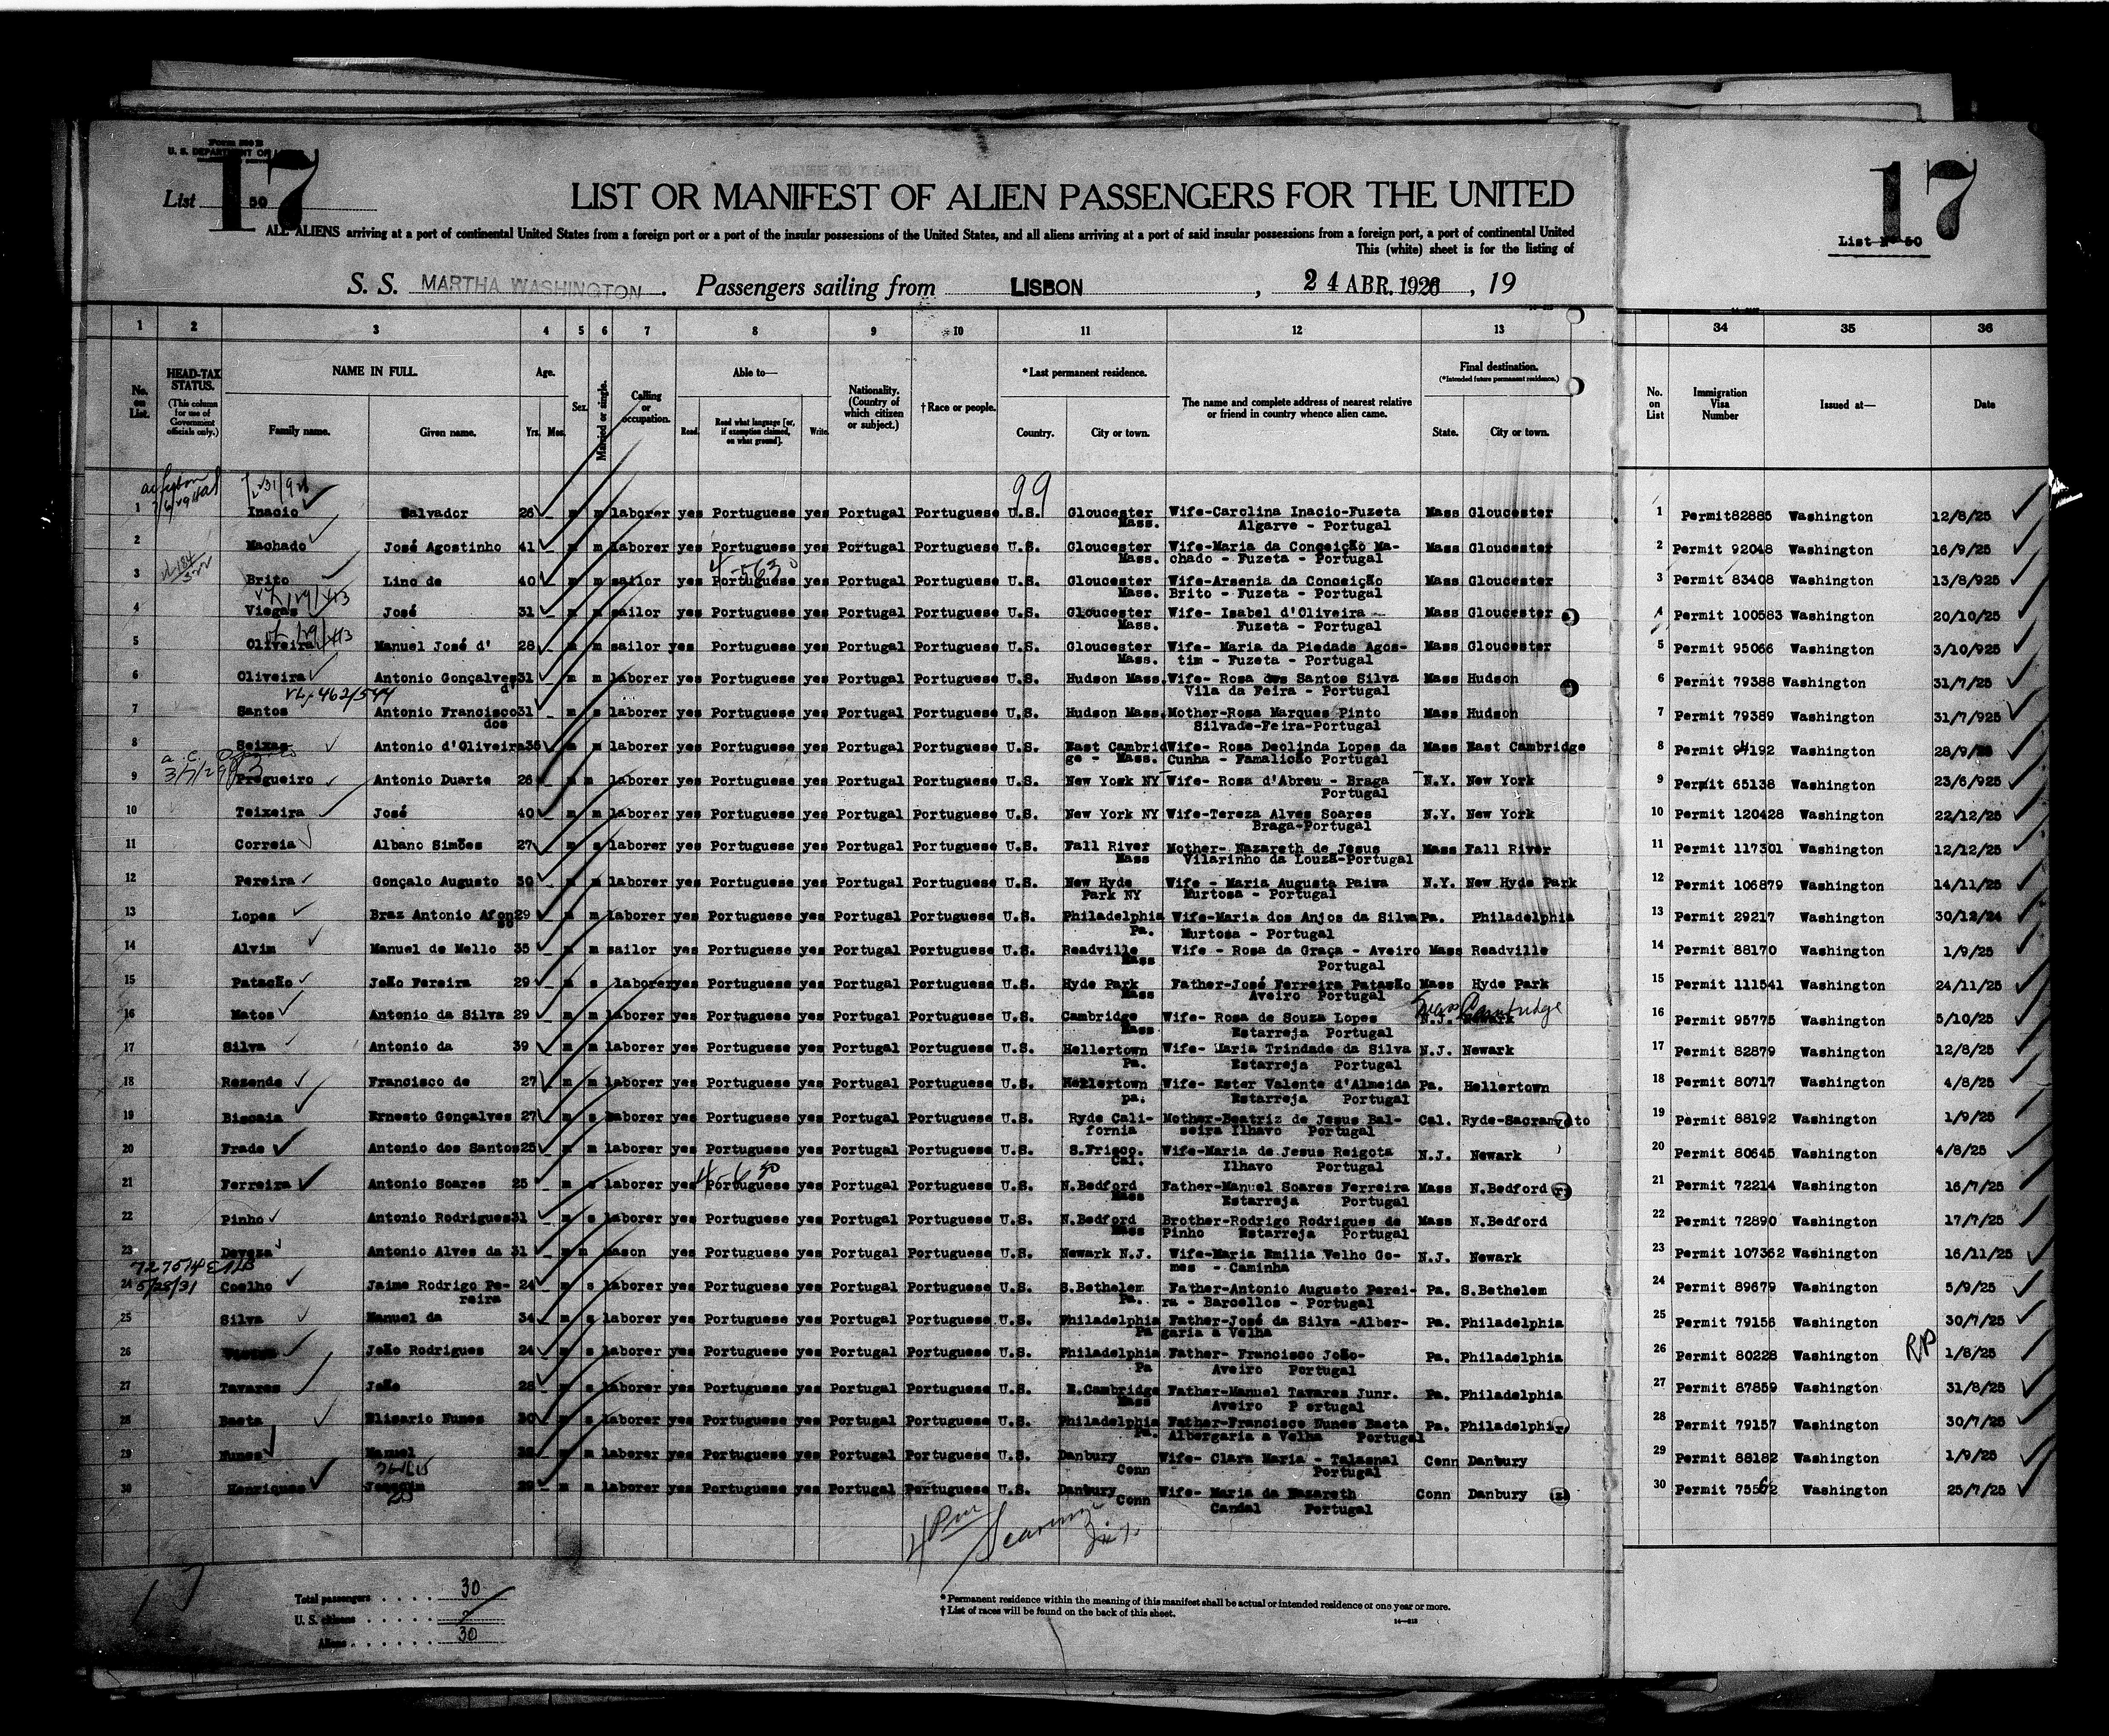 Form 500 B
U. S. DEPARTMENT OF
17
List 50
LIST OR MANIFEST OF ALIEN PASSENGERS FOR THE UNITED
ALL ALIENS arriving at a port of continental United States from a foreign port or a port of the insular possessions of the United States, and all aliens arriving at a port of said insular possessions from a foreign port, a port of continental United
This (white) sheet is for the listing of
S. S. MARTHA WASHINGTON. Passengers sailing from LISBON, 24 ABR. 1926, 19
17
List Nº 50
1 2 3 4 5 6 7 8 9 10 11 12 13 34 35 36
No. on List.
HEAD-TAX STATUS.
(This column for use of Government officials only.)
NAME IN FULL.
Family name. Given name.
Age.
Yrs. Mos.
Sex.
Married or single.
Calling or occupation.
Able to—
Read. Read what language [or, if exemption claimed, on what ground]. Write.
Nationality. (Country of which citizen or subject.)
†Race or people.
*Last permanent residence.
Country. City or town.
The name and complete address of nearest relative or friend in country whence alien came.
Final destination.
(*Intended future permanent residence.)
State. City or town.
No. on List
Immigration Visa Number
Issued at—
Date
99
1 Inacio Salvador 26 m m laborer yes Portuguese yes Portugal Portuguese U.S. Gloucester Mass. Wife-Carolina Inacio-Fuzeta Algarve - Portugal Mass Gloucester 1 Permit82885 Washington 12/8/25
2 Machado José Agostinho 41 m m laborer yes Portuguese yes Portugal Portuguese U.S. Gloucester Mass. Wife-Maria da Conceição Machado - Fuzeta - Portugal Mass Gloucester 2 Permit 92048 Washington 16/9/25
3 Brito Lino de 40 m m sailor yes Portuguese yes Portugal Portuguese U.S. Gloucester Mass. Wife-Arsenia da Conceição Brito - Fuzeta - Portugal Mass Gloucester 3 Permit 83408 Washington 13/8/925
4 Viegas José 31 m m sailor yes Portuguese yes Portugal Portuguese U.S. Gloucester Mass. Wife- Isabel d'Oliveira Fuzeta - Portugal Mass Gloucester 4 Permit 100583 Washington 20/10/25
5 Oliveira Manuel José d' 28 m m sailor yes Portuguese yes Portugal Portuguese U.S. Gloucester Mass. Wife- Maria da Piedade Agostim - Fuzeta - Portugal Mass Gloucester 5 Permit 95066 Washington 3/10/925
6 Oliveira Antonio Gonçalves d' 31 m m laborer yes Portuguese yes Portugal Portuguese U.S. Hudson Mass. Wife- Rosa dos Santos Silva Vila da Feira - Portugal Mass Hudson 6 Permit 79388 Washington 31/7/25
7 Santos Antonio Francisco dos 31 m s laborer yes Portuguese yes Portugal Portuguese U.S. Hudson Mass. Mother-Rosa Marques Pinto Silvade-Feira-Portugal Mass Hudson 7 Permit 79389 Washington 31/7/925
8 Seixas Antonio d'Oliveira 36 m m laborer yes Portuguese yes Portugal Portuguese U.S. East Cambridge - Mass. Wife- Rosa Deolinda Lopes da Cunha - Famalicão Portugal Mass East Cambridge 8 Permit 94192 Washington 28/9/25
9 Pregueiro Antonio Duarte 26 m m laborer yes Portuguese yes Portugal Portuguese U.S. New York NY Wife- Rosa d'Abreu - Braga Portugal N.Y. New York 9 Permit 65138 Washington 23/6/925
10 Teixeira José 40 m m laborer yes Portuguese yes Portugal Portuguese U.S. New York NY Wife-Tereza Alves Soares Braga-Portugal N.Y. New York 10 Permit 120428 Washington 22/12/25
11 Correia Albano Simões 27 m s laborer yes Portuguese yes Portugal Portuguese U.S. Fall River Mass Mother- Nazareth de Jesus Vilarinho da Louzã-Portugal Mass Fall River 11 Permit 117301 Washington 12/12/25
12 Pereira Gonçalo Augusto 30 m m laborer yes Portuguese yes Portugal Portuguese U.S. New Hyde Park NY Wife - Maria Augusta Paiwa Murtosa - Portugal N.Y. New Hyde Park 12 Permit 106879 Washington 14/11/25
13 Lopes Braz Antonio Afonso 29 m m laborer yes Portuguese yes Portugal Portuguese U.S. Philadelphia Pa. Wife-Maria dos Anjos da Silva Murtosa - Portugal Pa. Philadelphia 13 Permit 29217 Washington 30/12/24
14 Alvim Manuel de Mello 35 m m sailor yes Portuguese yes Portugal Portuguese U.S. Readville Mass Wife - Rosa da Graça - Aveiro Portugal Mass Readville 14 Permit 88170 Washington 1/9/25
15 Patacão João Pereira 29 m s laborer yes Portuguese yes Portugal Portuguese U.S. Hyde Park Mass Father-José Ferreira Patacão Aveiro Portugal Mass Hyde Park 15 Permit 111541 Washington 24/11/25
16 Matos Antonio da Silva 29 m m laborer yes Portuguese yes Portugal Portuguese U.S. Cambridge Mass Wife- Rosa de Souza Lopes Estarreja Portugal N.J. Newark Mass Cambridge 16 Permit 95775 Washington 5/10/25
17 Silva Antonio da 39 m m laborer yes Portuguese yes Portugal Portuguese U.S. Hellertown Pa. Wife- Maria Trindade da Silva Estarreja Portugal N.J. Newark 17 Permit 82879 Washington 12/8/25
18 Rezende Francisco de 27 m m laborer yes Portuguese yes Portugal Portuguese U.S. Hellertown pa. Wife- Ester Valente d'Almeida Estarreja Portugal Pa. Hellertown 18 Permit 80717 Washington 4/8/25
19 Biscaia Ernesto Gonçalves 27 m s laborer yes Portuguese yes Portugal Portuguese U.S. Ryde California Mother-Beatriz de Jesus Balseira Ilhavo Portugal Cal. Ryde-Sacramento 19 Permit 88192 Washington 1/9/25
20 Frade Antonio dos Santos 25 m m laborer yes Portuguese yes Portugal Portuguese U.S. S.Frisco. Cal. Wife-Maria de Jesus Reigota Ilhavo Portugal N.J. Newark 20 Permit 80645 Washington 4/8/25
21 Ferreira Antonio Soares 25 m s laborer yes Portuguese yes Portugal Portuguese U.S. N.Bedford Mass Father-Manuel Soares Ferreira Estarreja Portugal Mass N.Bedford 21 Permit 72214 Washington 16/7/25
22 Pinho Antonio Rodrigues 31 m s laborer yes Portuguese yes Portugal Portuguese U.S. N.Bedford Mass Brother-Rodrigo Rodrigues de Pinho Estarreja Portugal Mass N.Bedford 22 Permit 72890 Washington 17/7/25
23 Deveza Antonio Alves da 31 m m mason yes Portuguese yes Portugal Portuguese U.S. Newark N.J. Wife-Maria Emilia Velho Gomes - Caminha N.J. Newark 23 Permit 107362 Washington 16/11/25
24 5/28/31 Coelho Jaime Rodrigo Pereira 24 m s laborer yes Portuguese yes Portugal Portuguese U.S. S.Bethelem Pa. Father-Antonio Augusto Pereira - Barcellos - Portugal Pa. S.Bethelem 24 Permit 89679 Washington 5/9/25
25 Silva Manuel da 34 m s laborer yes Portuguese yes Portugal Portuguese U.S. Philadelphia Pa Father-José da Silva -Albergaria a Velha Pa. Philadelphia 25 Permit 79156 Washington 30/7/25
26 João Rodrigues 24 m s laborer yes Portuguese yes Portugal Portuguese U.S. Philadelphia Pa Father- Francisco João- Aveiro Portugal Pa. Philadelphia 26 Permit 80228 Washington RP 1/8/25
27 Tavares João 28 m s laborer yes Portuguese yes Portugal Portuguese U.S. E.Cambridge Mass Father-Manuel Tavares Junr. Aveiro P ortugal Pa. Philadelphia 27 Permit 87859 Washington 31/8/25
28 Baeta Elisario Nunes 30 m s laborer yes Portuguese yes Portugal Portuguese U.S. Philadelphia Pa. Father-Francisco Nunes Baeta Albergaria a Velha Portugal Pa. Philadelphia 28 Permit 79157 Washington 30/7/25
29 Nunes Manuel 38 m m laborer yes Portuguese yes Portugal Portuguese U.S. Danbury Conn Wife- Clara Maria - Talasnal Portugal Conn Danbury 29 Permit 88182 Washington 1/9/25
30 Henriques Joaquim 29 m m laborer yes Portuguese yes Portugal Portuguese U.S. Danbury Conn Wife- Maria da Nazareth Candal Portugal Conn Danbury 30 Permit 75562 Washington 25/7/25
Total passengers 30
U. S. citizens
Aliens 30
*Permanent residence within the meaning of this manifest shall be actual or intended residence of one year or more.
†List of races will be found on the back of this sheet.